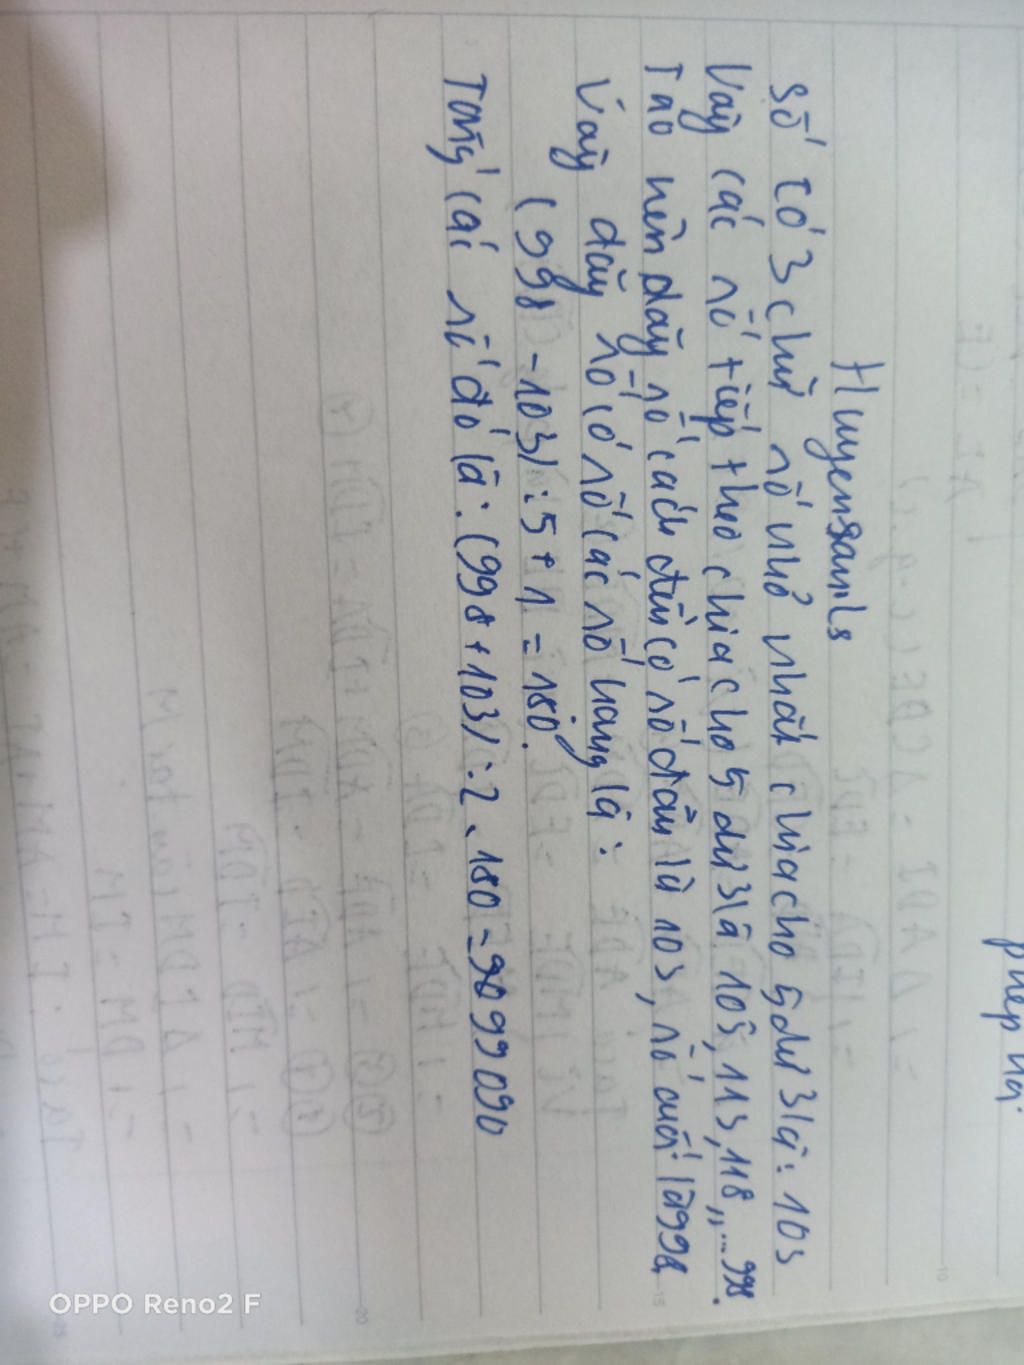 Huyensamls
Số có 3 chữ số nhỏ nhất chia cho 5 dư 3 là: 103
Vậy các số tiếp theo chia cho 5 dư 3 là 108, 113, 118,,...998.
Tạo nên dãy số cách đều có số đầu là 103, số cuối là 998
Vậy dãy số có số các số hạng là:
(998 - 103) : 5 + 1 = 180.
Tổng các số đó là: (998 + 103) : 2 . 180 = 99090
phép
OPPO Reno2 F